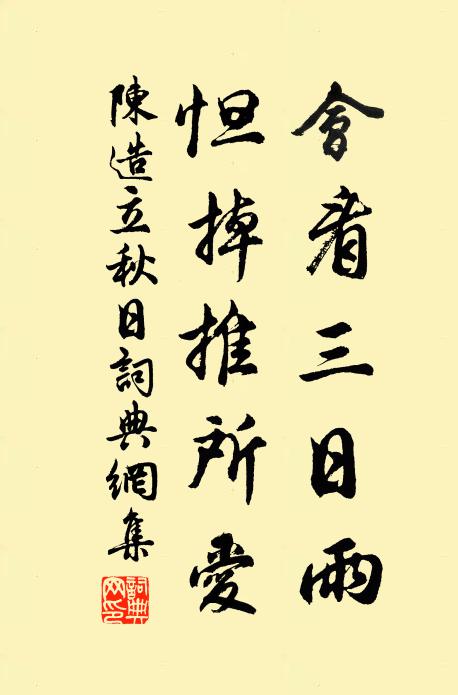 會看三日雨
怛掉推所愛
陳造立秋日詞典網集
詞典网印